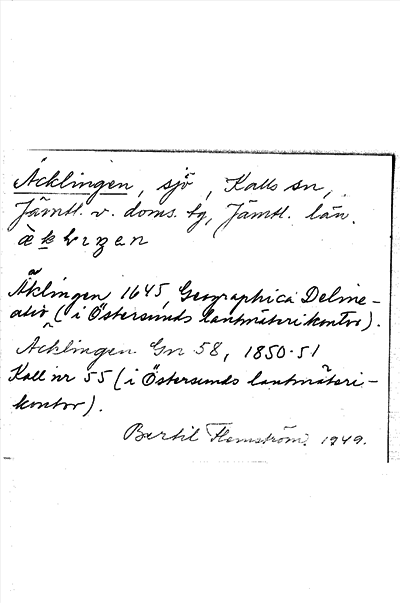 Äcklingen, sjö, Kalls sn,
Jämtl. v. doms. tg, Jämtl. län.
Äklingen 1645, Geographica Deline-
atio (i Östersunds lantmäterikontor).
Äcklingen Gn 58, 1850-51
Kall nr 55 (i Östersunds lantmäteri-
kontor).
Bertil Flemström 1949.